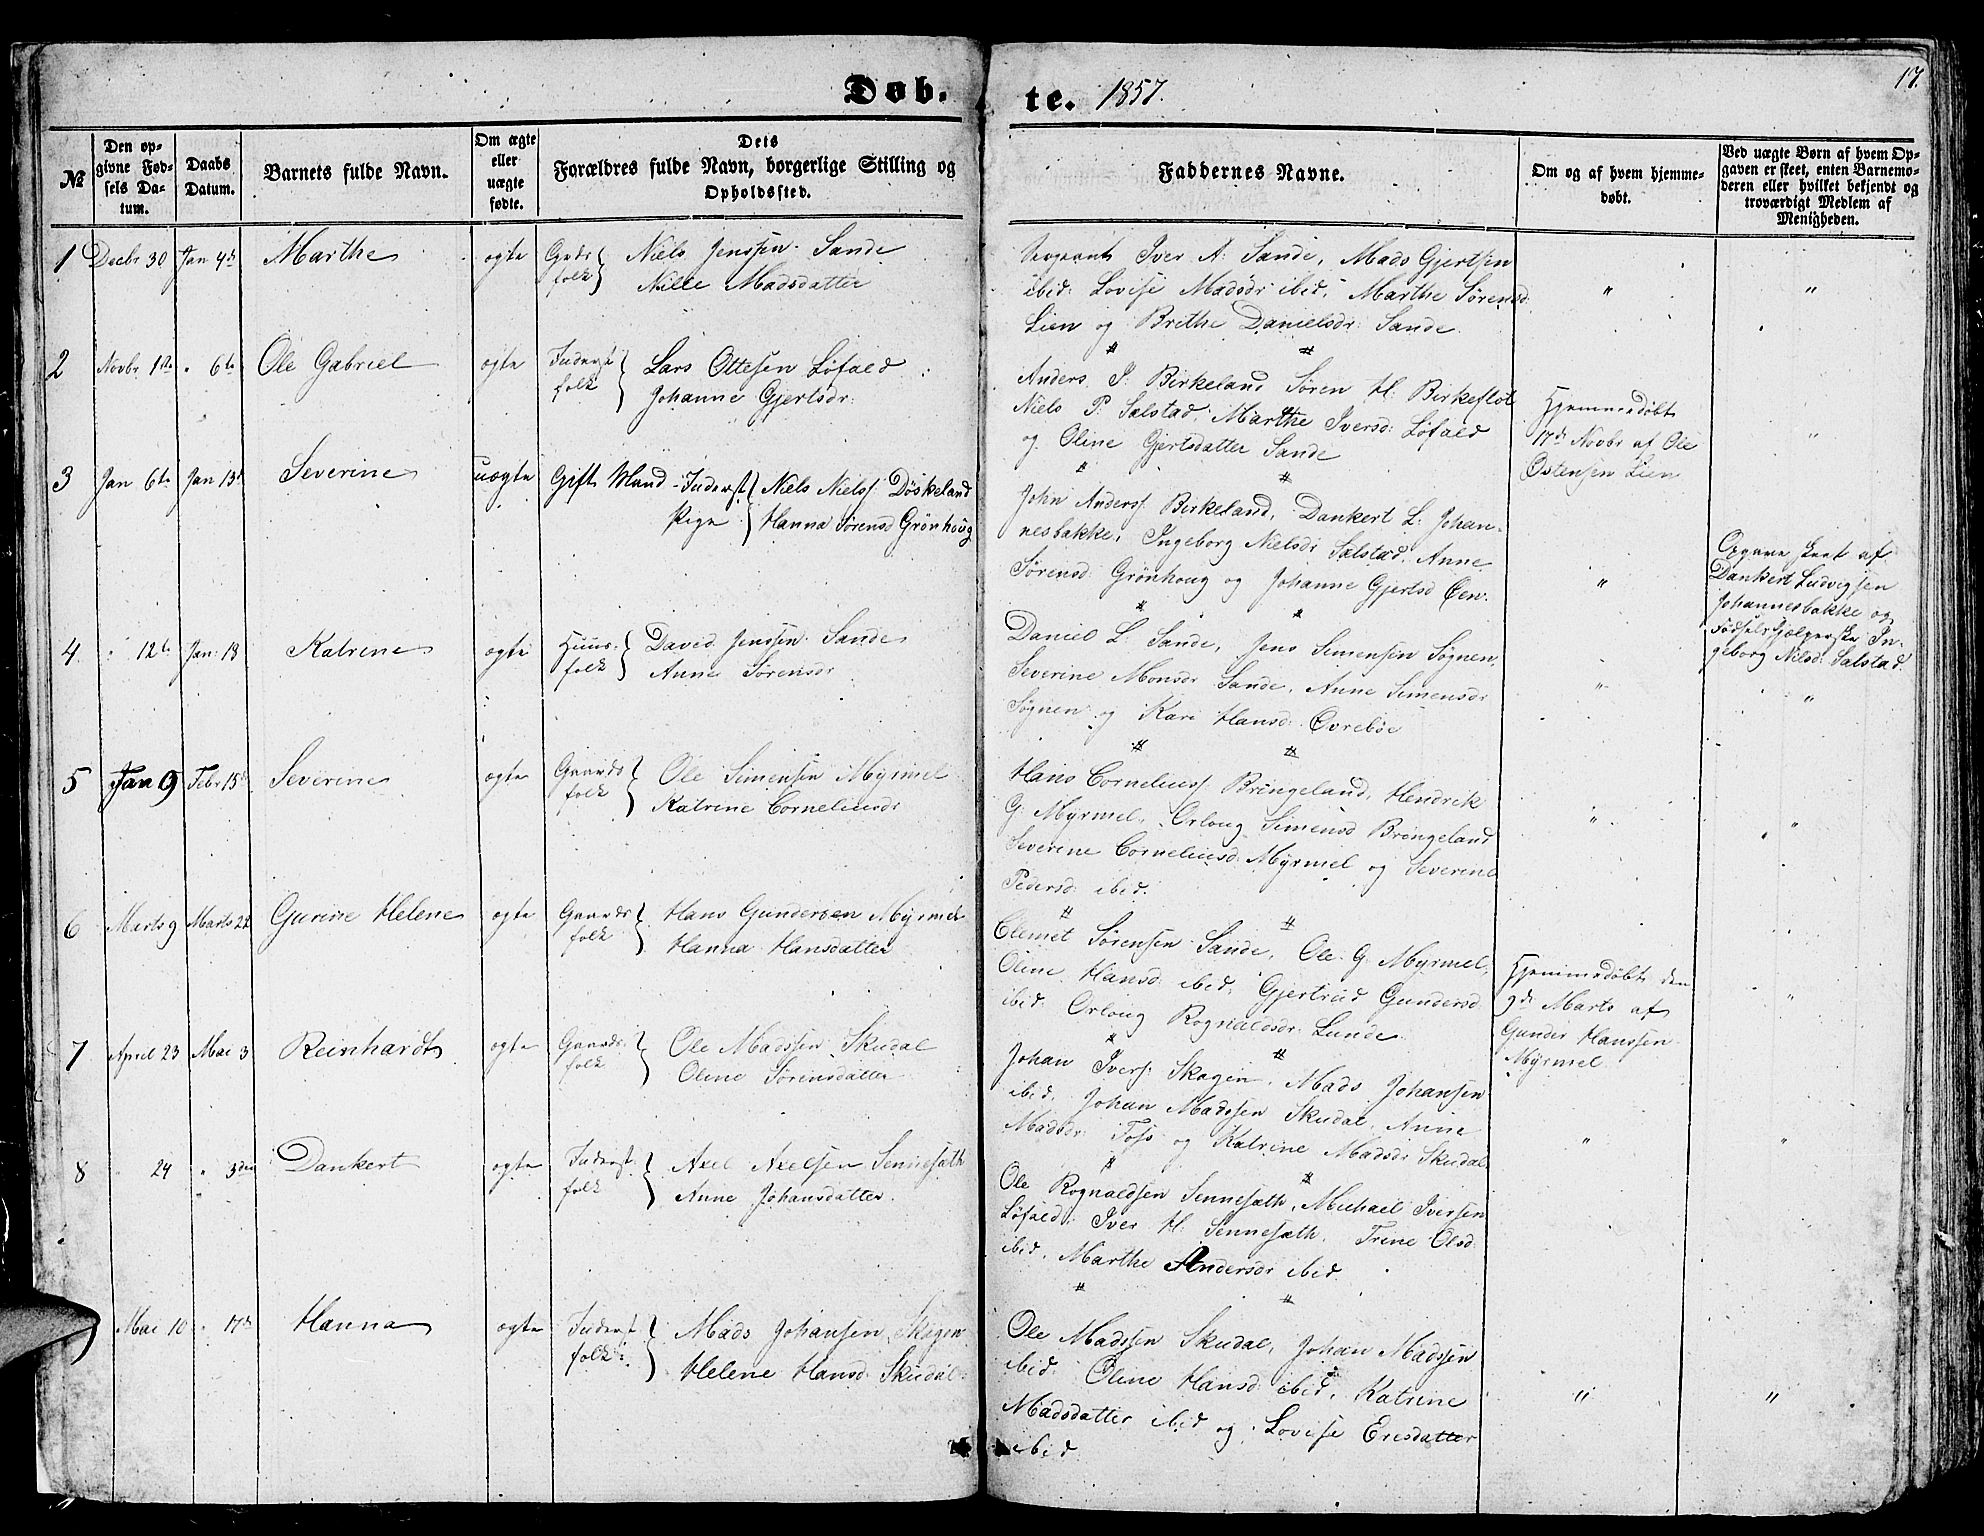 Døb-te. 1857.
17.
№
Den opgivne Fødsels Datum.
Daabs Datum.
Barnets fulde Navn.
Om ægte eller uægte fødte.
Dets Forældres fulde Navn, borgerlige Stilling og Opholdssted.
Faddernes Navne.
Om og af hvem hjemmedøbt.
Ved uægte Børn af hvem Opgaven er skeet, enten Barnemoderen eller hvilket bekjendt og troværdigt Medlem af Menigheden.
1 Decbr 30 Jan 4de Marthe ægte Grds folk } Niels Jenssen Sande
Nille Madsdatter
Sergeant Iver A: Sande, Mads Gjertsen
ibid: Lovise Madsdr ibid, Marthe Sørensd:
Lien og Brithe Danielsdr: Sande
" "
2 Novbr 1ste " 6te Ole Gabriel ægte Inderst folk } Lars Ottesen Løfald
Johanne Gjertsdr:
Anders I: Birkeland Søren H: Birkeflot
Niels P: Salstad, Marthe Iversd: Løfald
og Oline Gjertsdatter Sande
Hjemmedøbt
17de Novbr af Ole
Ostensen Lien
"
3 Jan 6te Jan 13de Severine uægte Gift Mand - Inderst } Niels Nielss: Døskeland
Pige } Hanna Sørensd Grønhoug
John Anderss: Birkeland, Dankert L: Johan-
nesbakke, Ingeborg Nielsdr Salstad, Anne
Sørensd: Grønhoug og Johanne Gjertsd Øen.
"
Opgave skeet af
Dankert Ludvigsen
Johannesbakke og
Fødselshjelperske In-
geborg Nilsd: Salstad.
4 " 12te Jan: 18 Katrine ægte Huus folk } David Jenssen Sande
Anne Sørensdr
Daniel L. Sande, Jens Simensen Søgnen,
Severine Monsdr Sande, Anne Simensdr
Søgnen og Kari Hansd: Øvrebøe
" "
5 Jan 9 Febr 15de Severine ægte Gaards folk } Ole Simensen Myrmel
Katrine Corneliusdr
Hans Corneliuss: Bringeland, Hendrik
G. Myrmel, Orloug Simensd Bringeland
Severine Corneliusd: Myrmel og Severine
Pedersd: ibid:
" "
6 Marts 9 Marts 22 Gurine Helene ægte Gaards folk } Hans Gundersen Myrmel
Hanna Hansdatter
Clemet Sørensen Sande, Ole G. Myrmel,
Oline Hansd: ibid, Gjertrud Gundersd:
ibid: Orloug Rognaldsdr: Lunde
Hjemmedøbt den
9de Marts af
Gunder Hanssen
Myrmel
"
7 April 23 Mai 3 Reinhardt ægte Gaards folk } Ole Madssen Skudal
Oline Sørensdatter
Johan Iverss: Skagen, Mads Johansen
ibid, Johan Madssen Skudal, Anne
Madsdr: Foss og Katrine Madsdr Skudal
" "
8 24 " 3den Dankert ægte Inderst folk } Axel Axelsen Sennesæth
Anne Johansdatter
Ole Rognaldsen Sennesæth, Michael Iversen
Løfald, Iver H. Sennesæth, Trine Olsd:
ibid, Marthe Andersdr ibid.
Mai 10 " 17de Hanna ægte Inderst folk } Mads Johansen Skagen
Helene Hansd: Skudal
Ole Madssen Skudal, Johan Madssen
ibid: Oline Hansd: ibid, Katrine
Madsdatter ibid og Lovise
ibid
" "